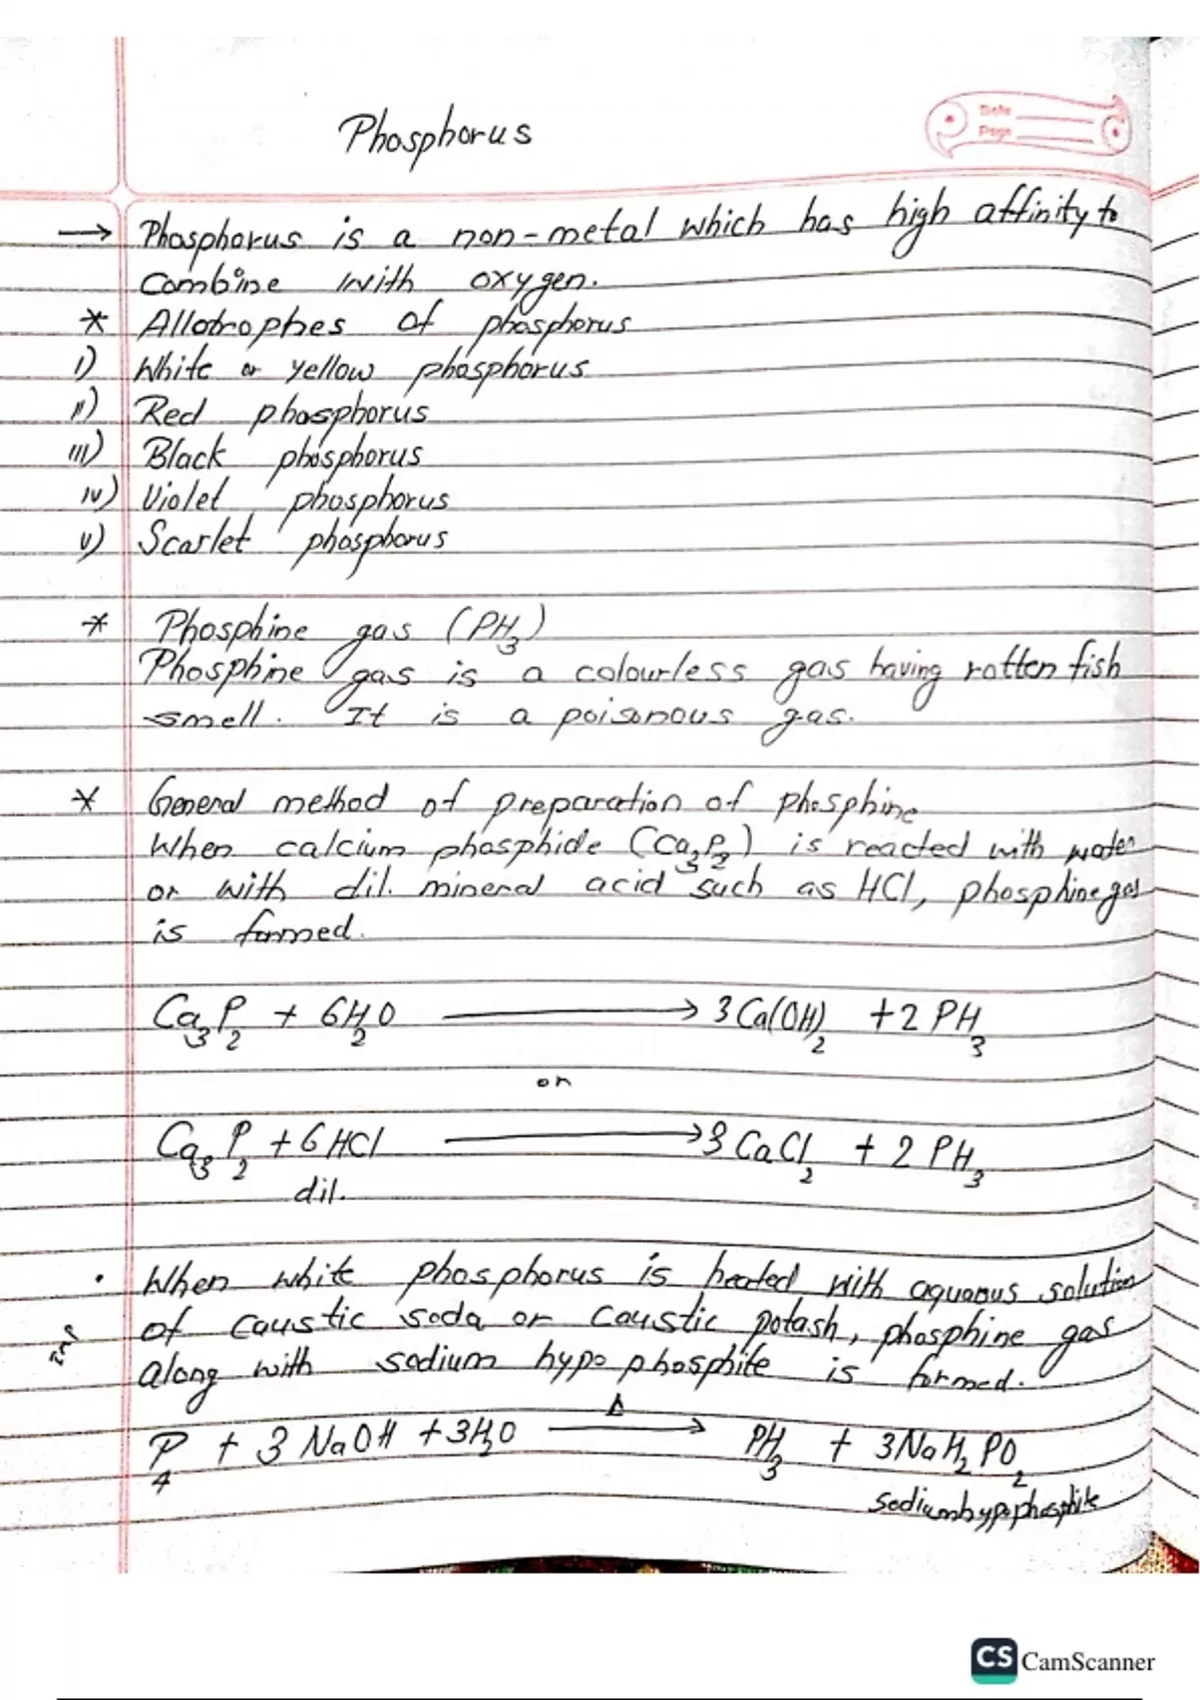 Phosphorus
Date
Page
→ Phosphorus is a non-metal which has high affinity to
combine with oxygen.
* Allotrophes of phosphorus
i) White or yellow phosphorus
ii) Red phosphorus
iii) Black phosphorus
iv) Violet phosphorus
v) Scarlet phosphorus
* Phosphine gas (PH₃)
Phosphine gas is a colourless gas having rotten fish
smell. It is a poisonous gas.
* General method of preparation of phosphine
When calcium phosphide (Ca₃P₂) is reacted with water
or with dil. mineral acid such as HCl, phosphine gas
is formed.
Ca₃P₂ + 6H₂O ⟶ 3Ca(OH)₂ + 2PH₃
or
Ca₃P₂ + 6HCl ⟶ 3CaCl₂ + 2PH₃
dil.
• When white phosphorus is heated with aquous solution
imp of caustic soda or caustic potash, phosphine gas
along with sodium hypophosphite is formed.
Δ
P₄ + 3NaOH + 3H₂O ⟶ PH₃ + 3NaH₂PO₂
sodiumhypophosphite
CS CamScanner